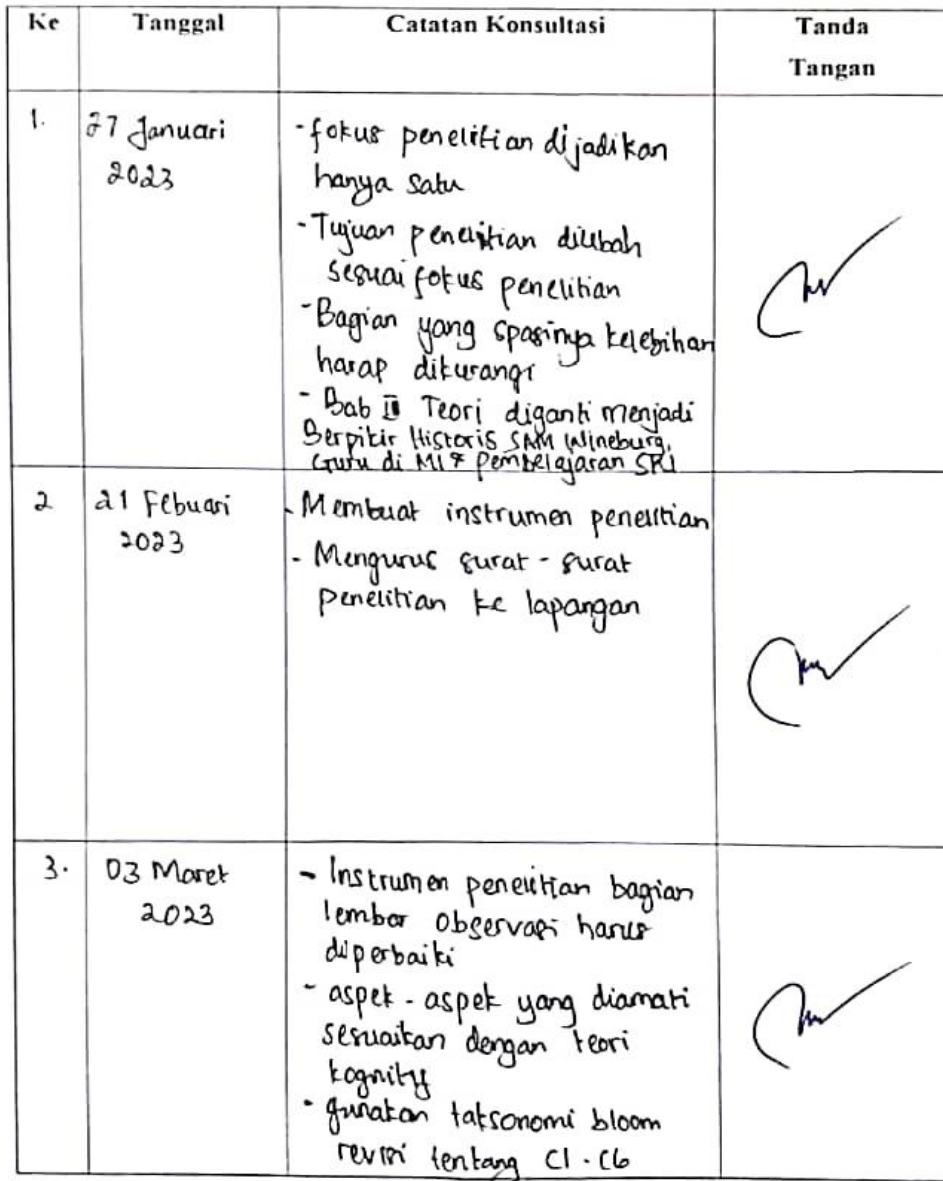 Ke Tanggal Catatan Konsultasi Tanda
Tangan
1. 27 Januari - fokus penelitian dijadikan
2023 hanya satu
- Tujuan penelitian diubah
sesuai fokus penelitian
- Bagian yang spasinya kelebihan
harap dikurangi
- Bab II Teori diganti menjadi
Berpikir Historis SAM Wineburg,
Guru di MI & Pembelajaran SKI
2 21 Febuari - Membuat instrumen penelitian
2023 - Mengurus surat - surat
penelitian ke lapangan
3. 03 Maret - Instrumen penelitian bagian
2023 lembar observasi harus
diperbaiki
- aspek - aspek yang diamati
sesuaikan dengan teori
kognitif
- gunakan taksonomi bloom
revisi tentang C1 - C6